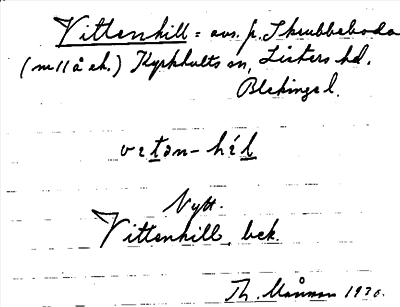 Vittenhill = avs. p. Skrubbeboda
(m 11 å ek.) Kyrkhults sn, Listers hd.
Blekinge l.
vitən-híl
Nytt.
Vittenhill, bek.
Th. Månsson 1930.